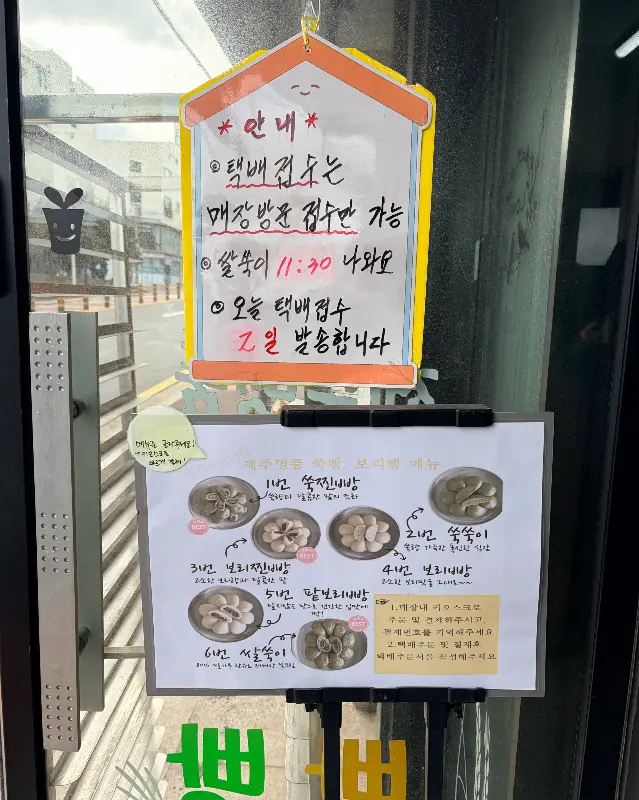 * 안내 *
◎ 택배접수는
매장방문 접수만 가능
◎ 쌀쑥이 11:30 나와요
◎ 오늘 택배접수
2일 발송합니다
제주명품 쑥빵. 보리빵 메뉴
1번 쑥찐빵
BEST
2번 쑥쑥이
3번 보리찐빵
BEST
4번 보리빵
5번 팥보리빵
BEST
6번 쌀쑥이
1.매장내 키오스크로
주문 및 결제해주시고,
결제번호를 기억해주세요
2.택배주문 및 결제후
택배주문서를 작성해주세요